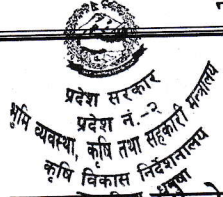 प्रदेश सरकार
प्रदेश नं.-२
भूमि व्यवस्था, कृषि तथा सहकारी मन्त्रालय
कृषि विकास निर्देशनालय
धनुषा